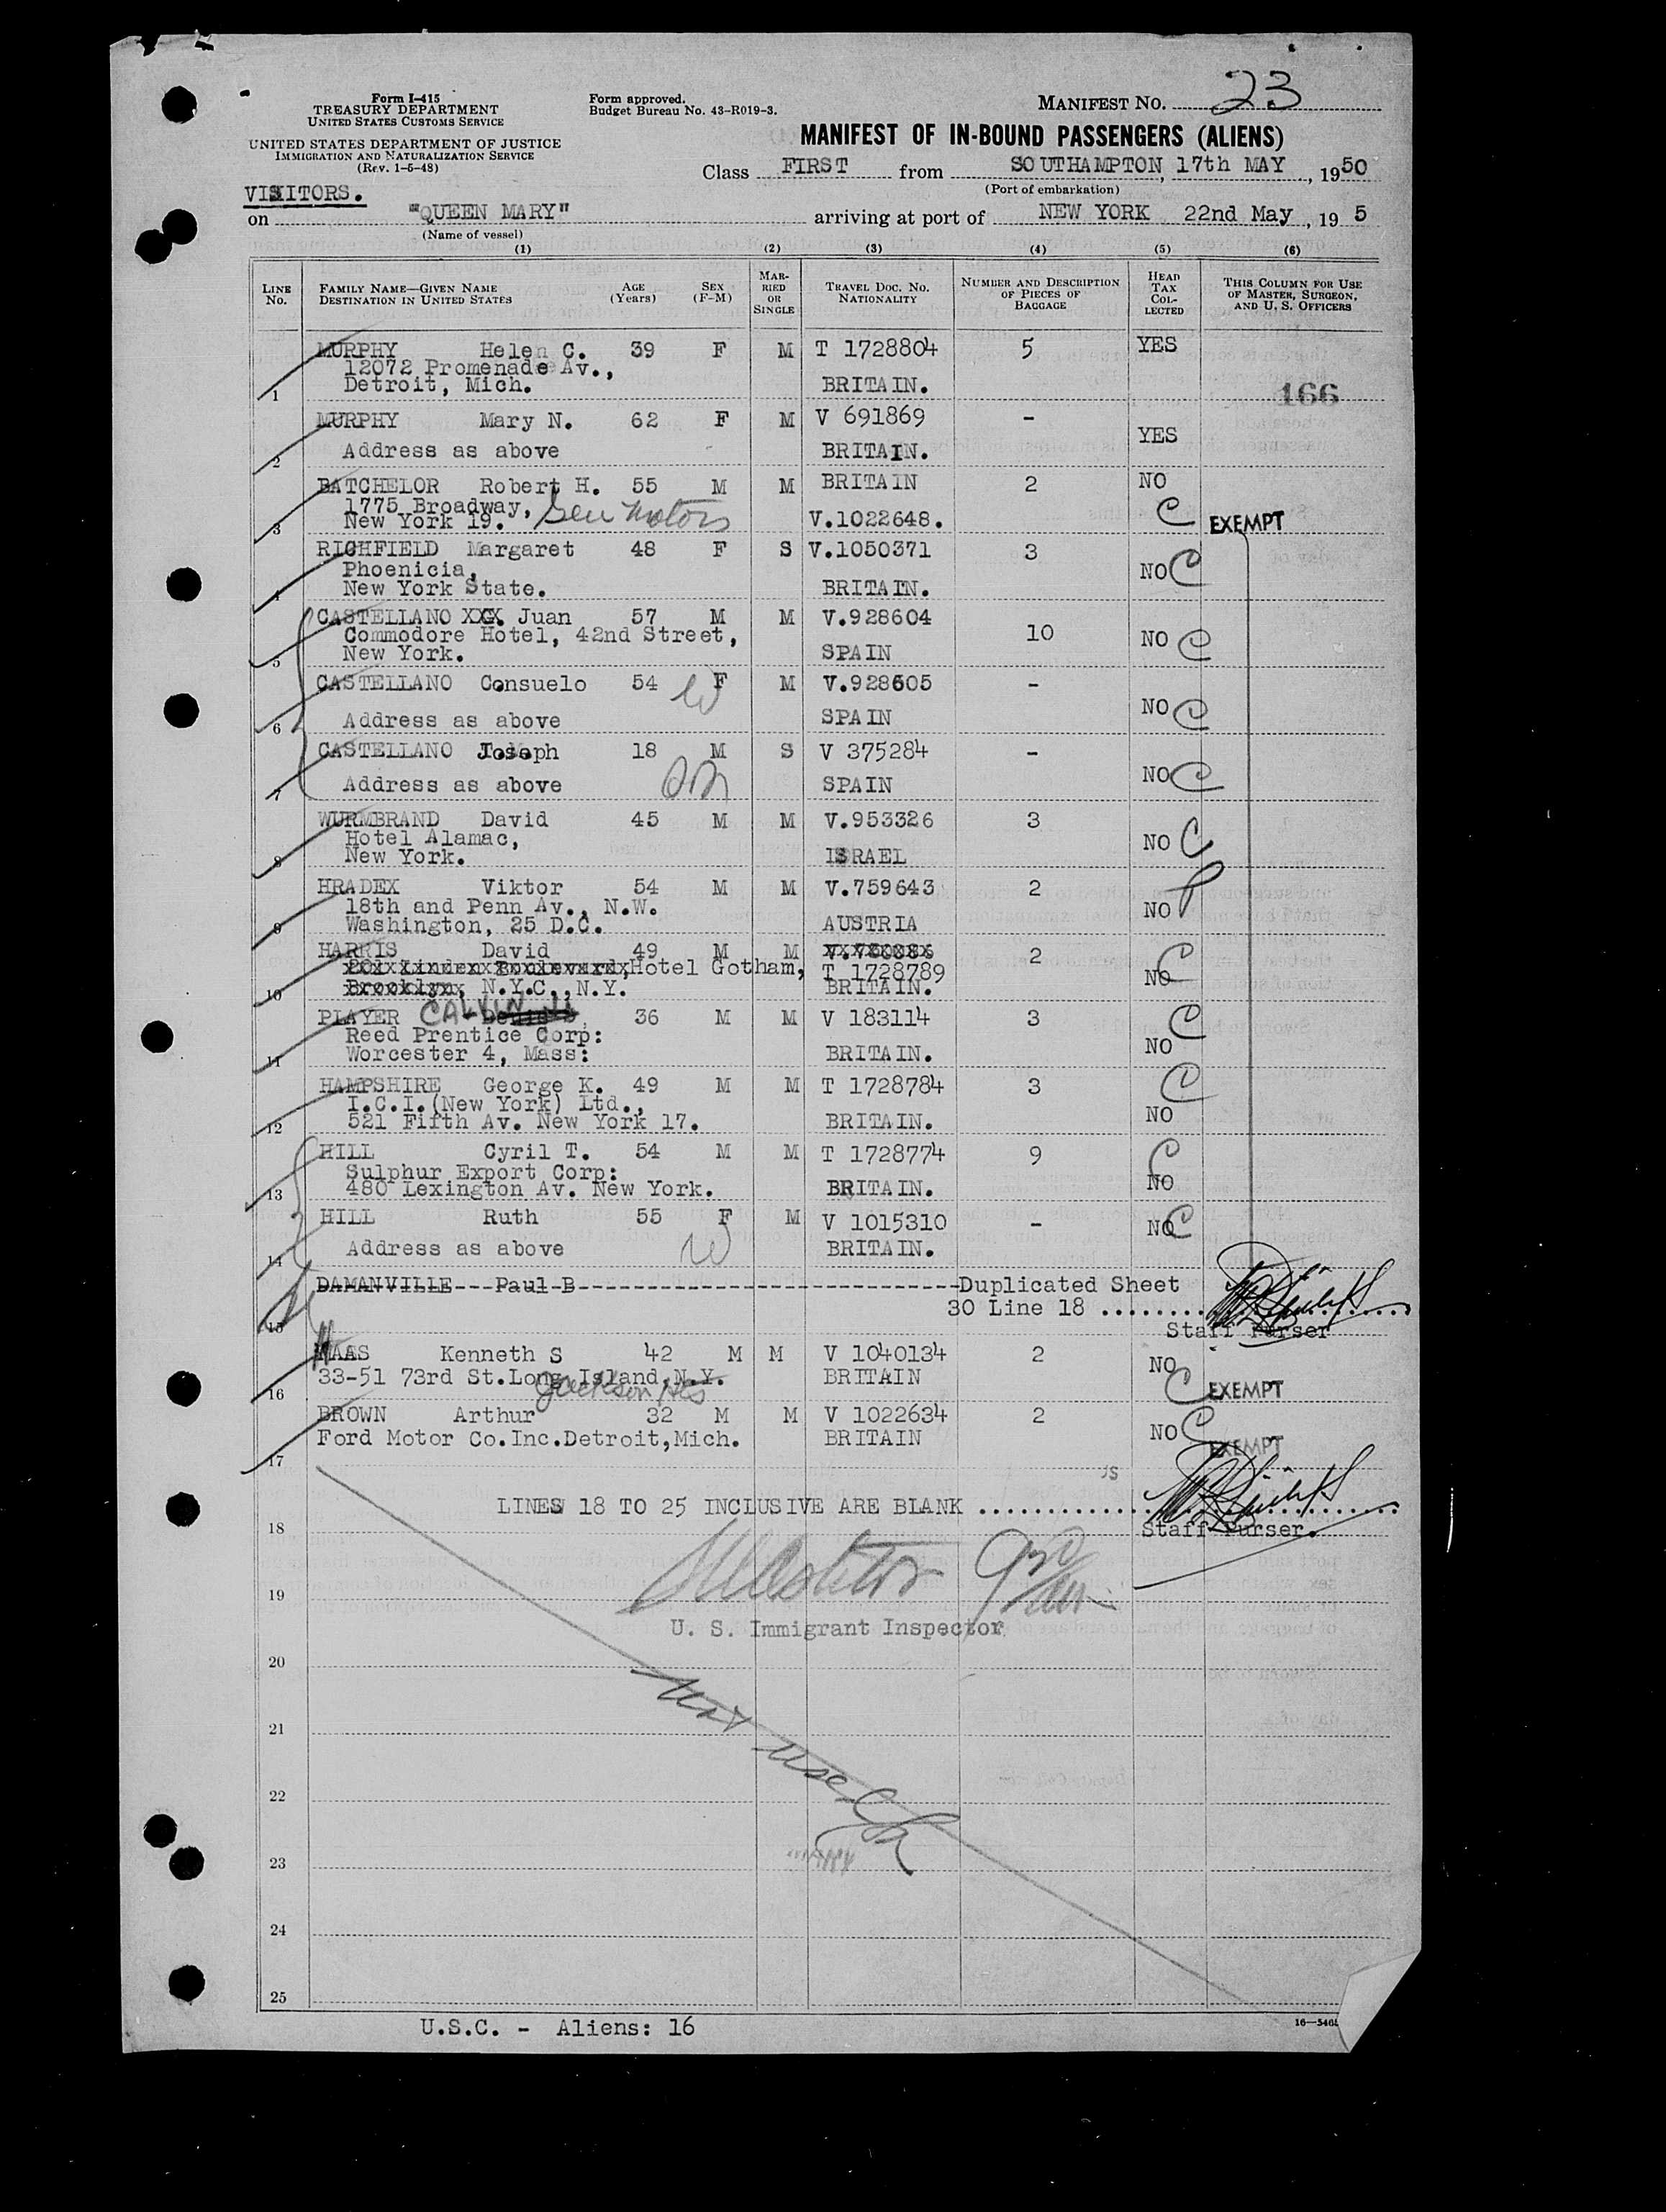 Form I-415
TREASURY DEPARTMENT
UNITED STATES CUSTOMS SERVICE
UNITED STATES DEPARTMENT OF JUSTICE
IMMIGRATION AND NATURALIZATION SERVICE
(Rev. 1-5-48)
Form approved.
Budget Bureau No. 43-R019-3.
MANIFEST NO. 23
MANIFEST OF IN-BOUND PASSENGERS (ALIENS)
Class FIRST from SOUTHAMPTON, 17th MAY, 1950
(Port of embarkation)
VISITORS.
on "QUEEN MARY" arriving at port of NEW YORK 22nd May, 19 5
(Name of vessel)
(1) (2) (3) (4) (5) (6)
LINE No. FAMILY NAME—GIVEN NAME DESTINATION IN UNITED STATES AGE (Years) SEX (F-M) MARRIED OR SINGLE TRAVEL DOC. NO. NATIONALITY NUMBER AND DESCRIPTION OF PIECES OF BAGGAGE HEAD TAX COLLECTED THIS COLUMN FOR USE OF MASTER, SURGEON, AND U. S. OFFICERS
MURPHY Helen C. 39 F M T 1728804 5 YES
12072 Promenade Av.,
1 Detroit, Mich. BRITAIN. 166
MURPHY Mary N. 62 F M V 691869 - YES
2 Address as above BRITAIN.
BATCHELOR Robert H. 55 M M BRITAIN 2 NO
1775 Broadway, C
3 New York 19. Gen Motors V.1022648. EXEMPT
RICHFIELD Margaret 48 F S V.1050371 3
Phoenicia, NO C
4 New York State. BRITAIN.
CASTELLANO XXX G. Juan 57 M M V.928604
Commodore Hotel, 42nd Street, 10 NO C
5 New York. SPAIN
CASTELLANO Consuelo 54 F M V.928605 -
W NO C
6 Address as above SPAIN
CASTELLANO Joseph 18 M S V 375284 -
NO C
7 Address as above SPAIN
WURMBRAND David 45 M M V.953326 3
Hotel Alamac, NO C
8 New York. ISRAEL
HRADEX Viktor 54 M M V.759643 2
18th and Penn Av., N.W. NO
9 Washington, 25 D.C. AUSTRIA
HARRIS David 49 M M 2 C
Hotel Gotham, T 1728789 NO
10 Brooklyn, N.Y.C., N.Y. BRITAIN.
PLAYER CALVIN 36 M M V 183114 3 C
Reed Prentice Corp: NO
11 Worcester 4, Mass: BRITAIN.
HAMPSHIRE George K. 49 M M T 1728784 3 C
I.C.I.(New York) Ltd.,
12 521 Fifth Av. New York 17. BRITAIN. NO
HILL Cyril T. 54 M M T 1728774 9 C
Sulphur Export Corp:
13 480 Lexington Av. New York. BRITAIN. NO
HILL Ruth 55 F M V 1015310 - NO C
W
14 Address as above BRITAIN.
DAMANVILLE---Paul-B----------------------------Duplicated Sheet
30 Line 18 ........
15 Staff Purser
HAAS Kenneth S 42 M M V 1040134 2 NO
33-51 73rd St.Long Island,N.Y. BRITAIN C EXEMPT
16 Jackson Hts
BROWN Arthur 32 M M V 1022634 2 NO C
Ford Motor Co.Inc.Detroit,Mich. BRITAIN EXEMPT
17
LINES 18 TO 25 INCLUSIVE ARE BLANK ..............
18 Staff Purser.
19
U. S. Immigrant Inspector
20
Not
21
use
22
23
24
25
U.S.C. - Aliens: 16